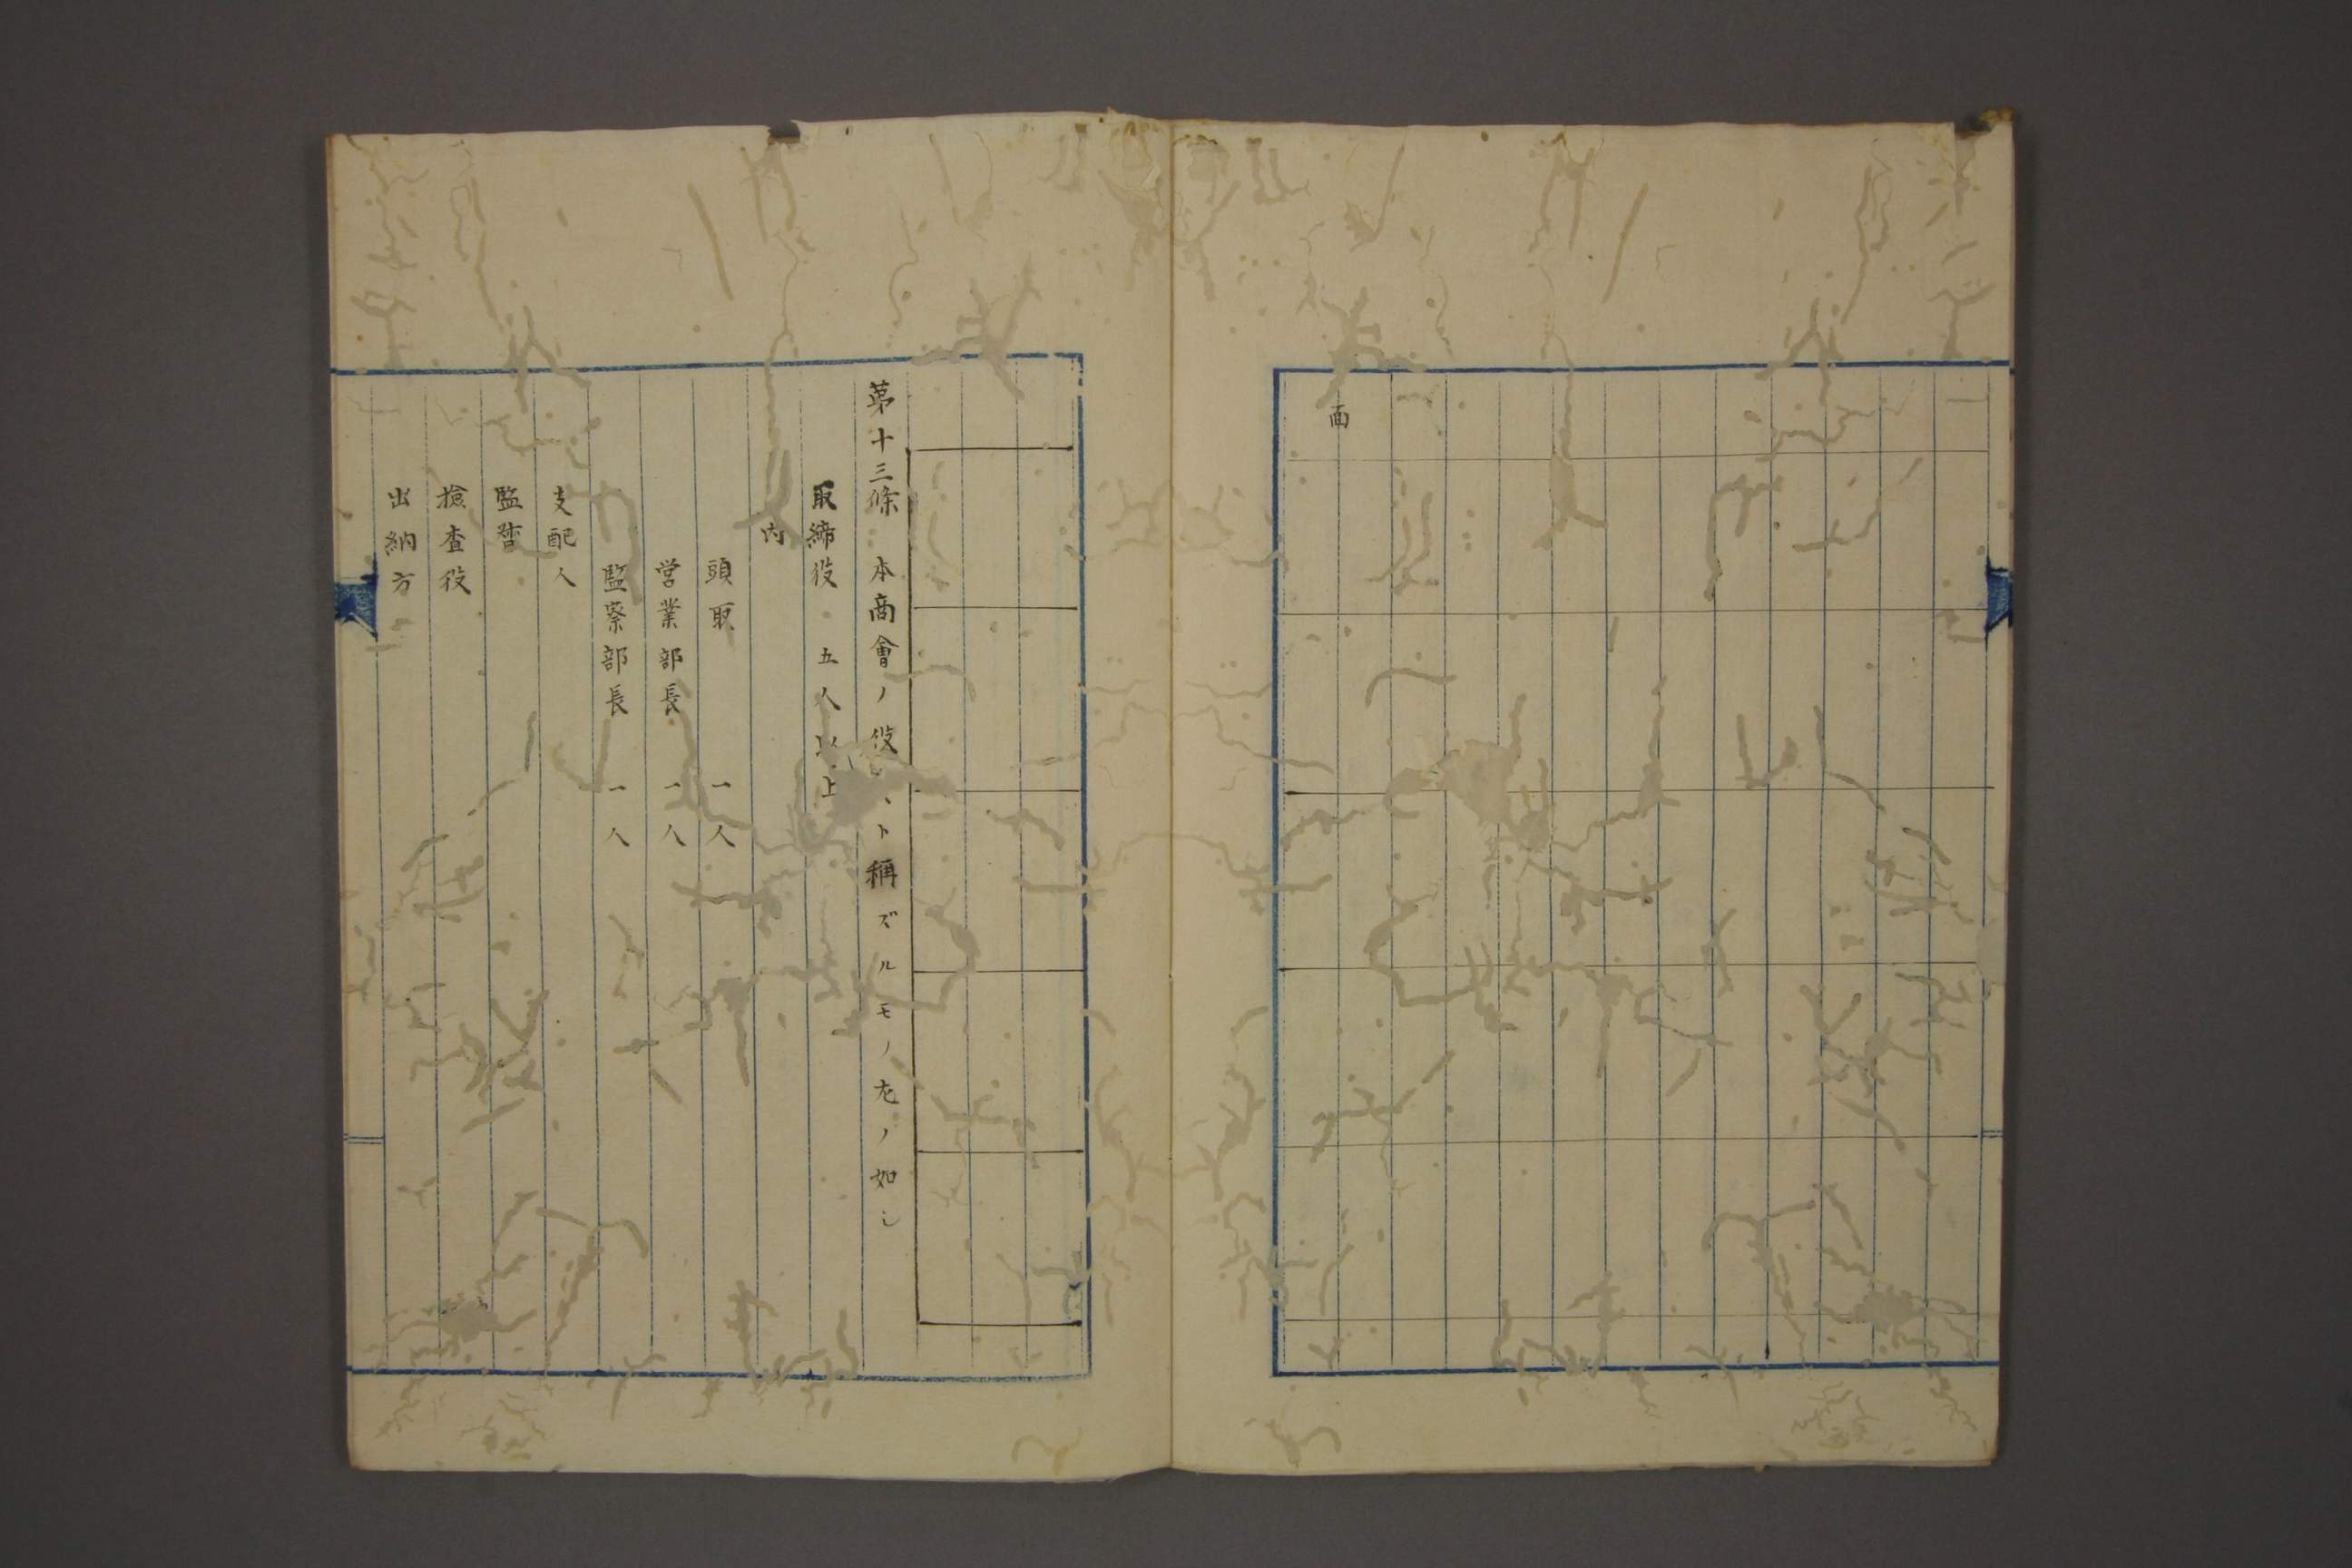 面
第十三條 本商會ノ役々ト稱ズルモノ左ノ如シ
取締役 五人以上
內
頭取 一人
営業部長 一人
監察部長 一人
支配人
監督
撿查役
出納方